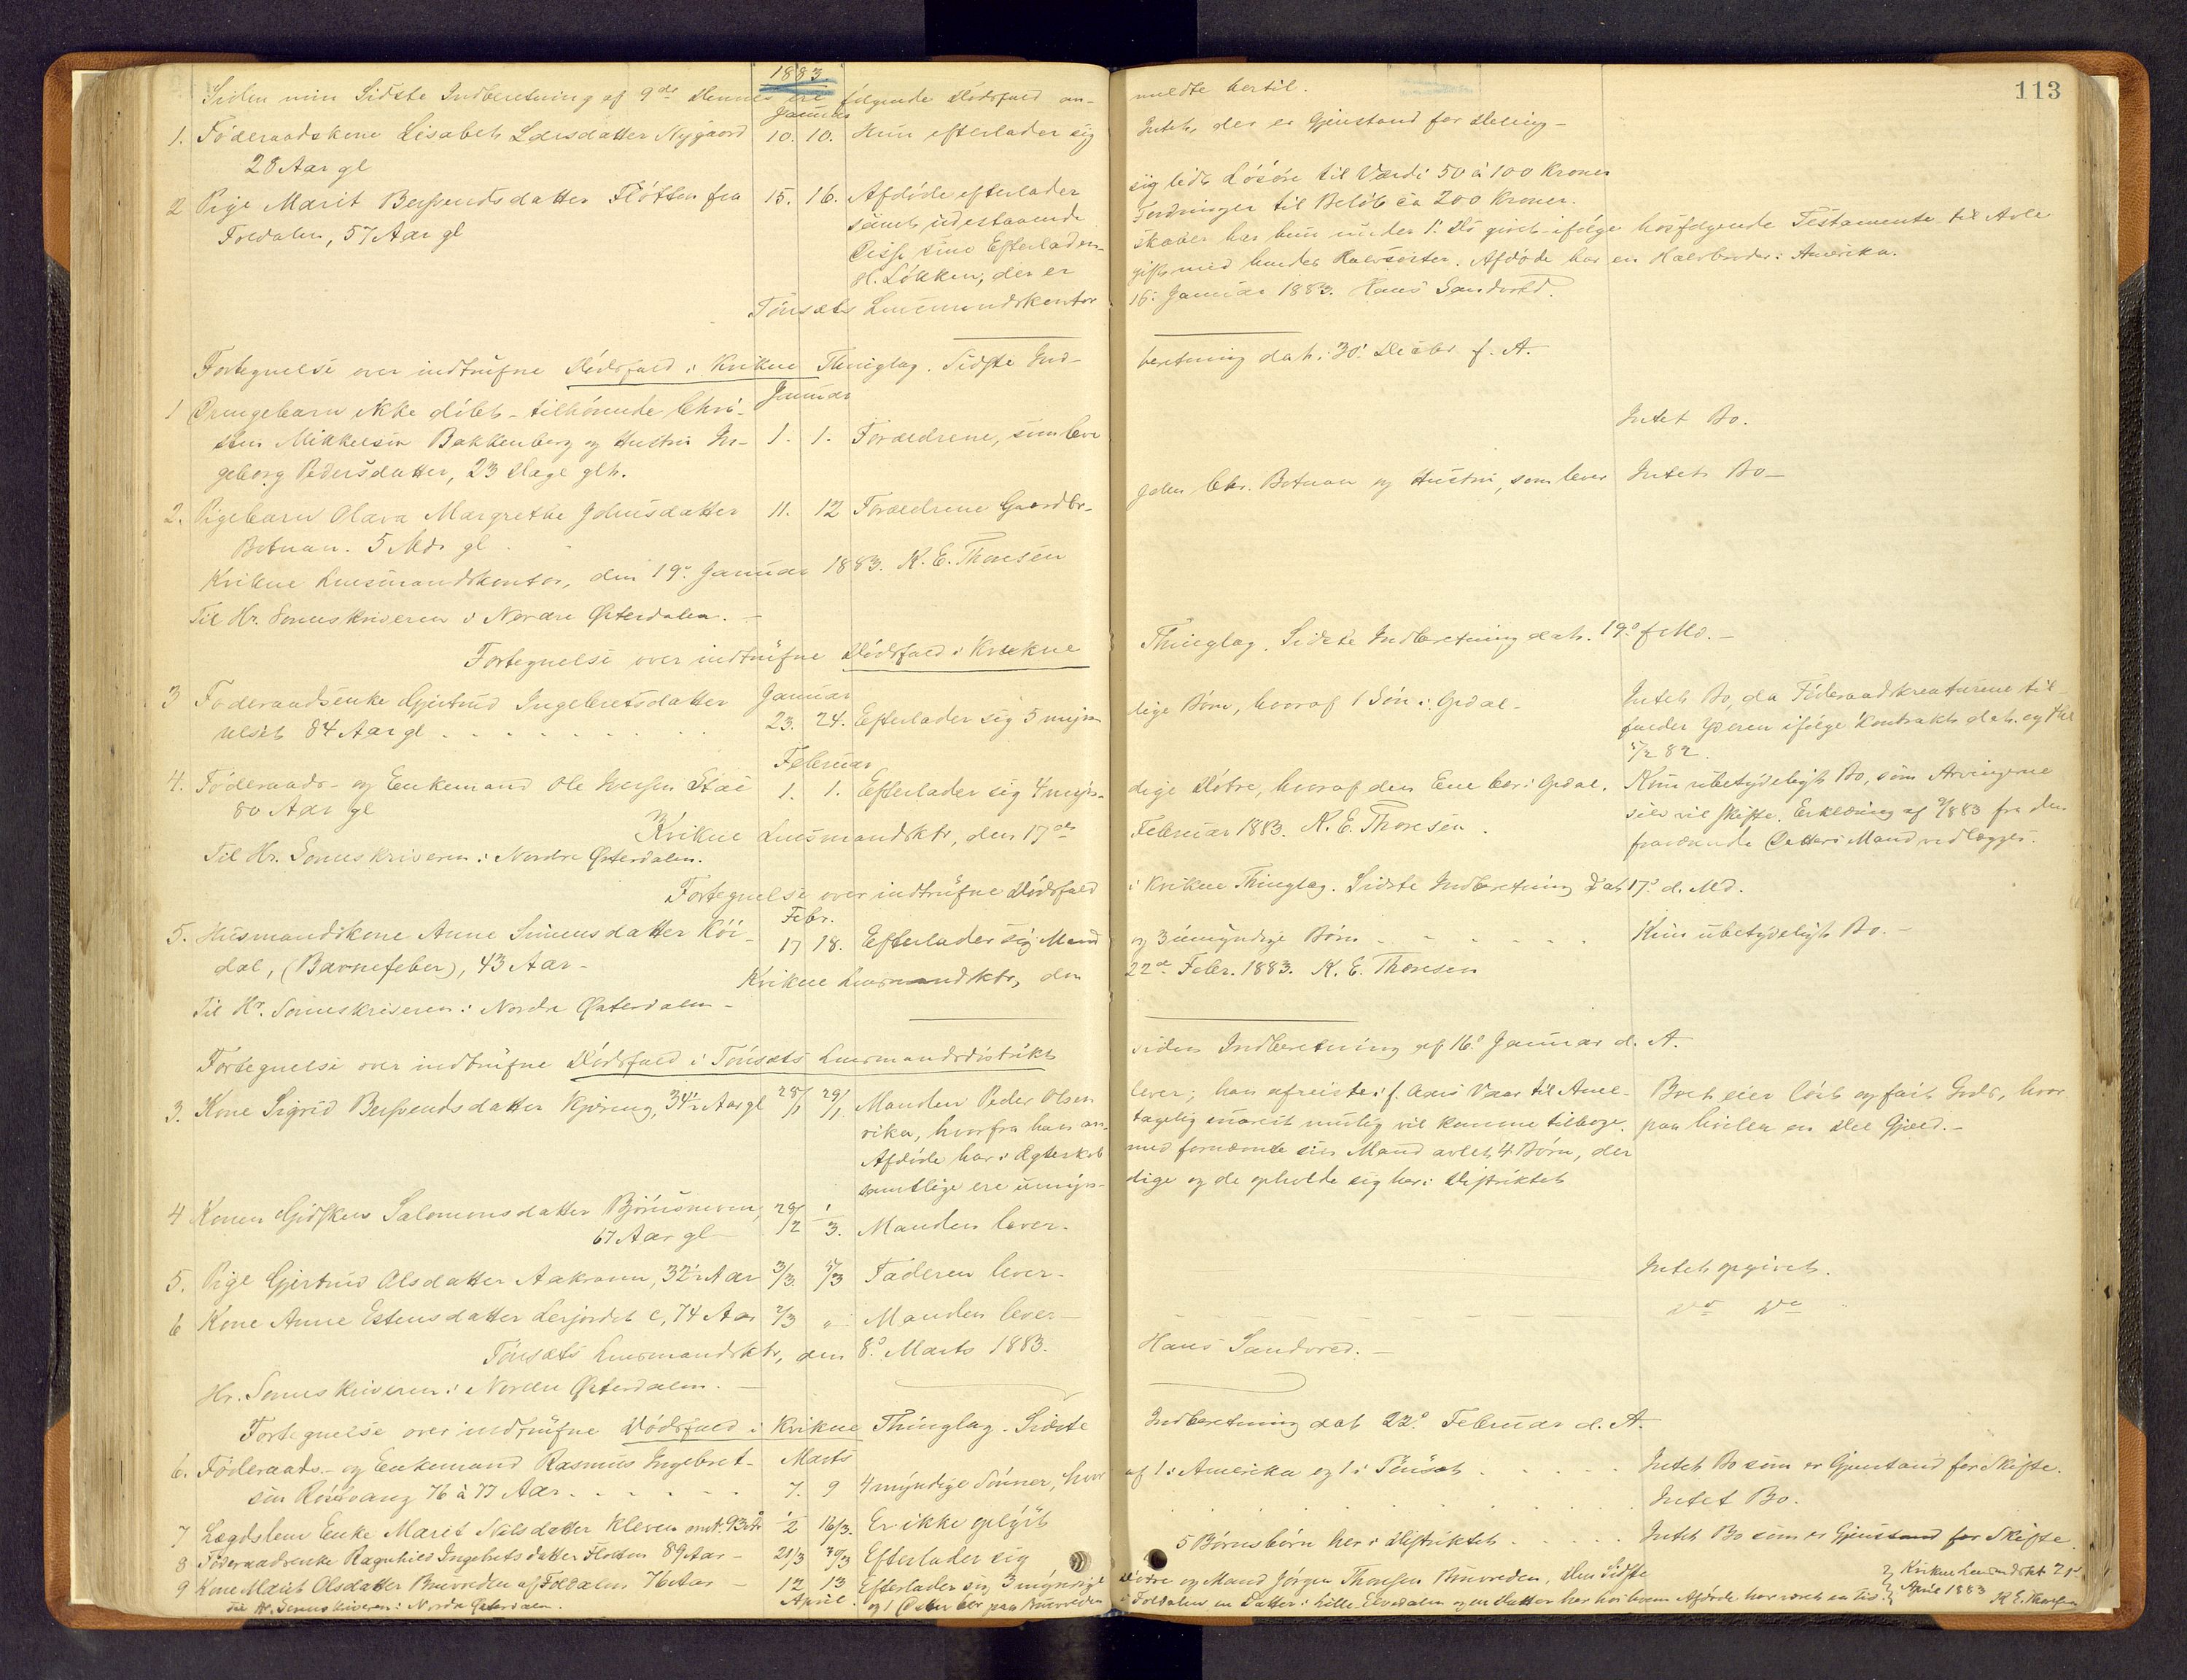 113
1883.
Siden min Sidste Indberetning af 9de dennes ere følgende Dødsfald an-
meldte hertil.
Januar
1. Føderaadskone Lisabeth Larsdatter Nygaard 10. 10. Hun efterlader sig
Intet, der er Gjenstand for Deling-
28 Aar gl
2 Pige Marit Bersvendsdatter Fløtten fra 15. 16. Afdøde efterlader
sig lidt Løsøre til Værdi 50 à 100 Kroner
Foldalen, 57 Aar gl samt udestaaende
Fordringer til Beløb ca 200 Kroner.
Disse sine Efterladen-
skaber har hun under 1. Ds givet ifølge hosfølgende Testamente til Arle
H. Løkken, der er
gift med hendes Halvsøster. Afdøde har en Halvbroder i Amerika.
Tønsets Lensmandskontor
16. Januar 1883. Hans Sandvold.
Fortegnelse over indtrufne Dødsfald i Kvikne Thinglag. Sidste Ind-
beretning dat. 30. Decbr f. A.
Januar
1 Drengebarn ikke døbt - tilhørende Chri-
sten Mikkelsen Bakkenberg og Hustru In- 1. 1. Forældrene, som leve
Intet Bo.
geborg Pedersdatter, 23 Dage glt.
2. Pigebarn Olava Margrethe Johnsdatter 11. 12 Forældrene Gaardbr.
John Chr. Botnan og Hustru, som lever Intet Bo-
Botnan. 5 Mdr gl
Kvikne Lensmandskontor, den 19de Januar 1883. K. E. Thoresen
Til Hr. Sorenskriveren i Nordre Østerdalen.
Fortegnelse over indtrufne Dødsfald i Kvikne
Thinglag. Sidste Indberetning dat. 19de f. Md.-
Januar
3 Føderaadsenke Gjertrud Ingebretsdatter
ulset 84 Aar gl . . . . 23. 24. Efterlader sig 5 myn-
dige Børn, hvoraf 1 Søn i Opdal-
Intet Bo, da Føderaadskreaturene til-
falder Yderen ifølge Kontrakt dat. og thl
5/2 82
Februar
4. Føderaads- og Enkemand Ole Iversen Stai 1. 1. Efterlader sig 4 myn-
dige Døtre, hvoraf den Ene bor i Opdal. Kun ubetydeligt Bo, som Arvingerne
80 Aar gl
selv vil skifte. Erklæring af 2/2 83 fra den
Kvikne Lensmandsktr, den 17de
Februar 1883. K. E. Thoresen.
fraværende Datters Mand vedlægges.
Til Hr. Sorenskriveren i Nordre Østerdalen.
Fortegnelse over indtrufne Dødsfald
i Kvikne Thinglag. Sidste Indberetning dat 17. d. Md.
Febr.
5. Husmandskone Anne Simensdatter Køi- 17 18. Efterlader sig Mand
og 3 umyndige Børn - - - - - Kun ubetydeligt Bo.-
dal, (Barnefeber), 43 Aar-
Kvikne Lensmandsktr, den
22de Febr. 1883. K. E. Thoresen
Til Hr. Sorenskriveren i Nordre Østerdalen-
Fortegnelse over indtrufne Dødsfald i Tønsets Lensmandsdistrikt
siden Indberetning af 16de Januar d. A.
3. Kone Sigrid Bersvendsdatter Kjøreng, 34½ Aar gl 28/1 29/1. Manden Peder Olsen
lever; han afreiste i f. Aars Vaar til Ame-
Boet eier løst og fast Gods, hvor
rika, hvorfra han an-
tagelig snarest mulig vil komme tilbage.
paa hviler en Del Gjæld.-
Afdøde har i Ægteskab
med fornævnte sin Mand avlet 4 Børn, der
samtlige ere umyn-
dige og de opholde sig her i Distriktet
4 Konen Gjøsken Salomonsdatter Bjørnsmoen, 28/2 1/3. Manden lever-
67 Aar gl
5. Pige Gjertrud Olsdatter Aakrann, 32½ Aar 3/3. 5/3 Faderen lever-
Intet opgivet.
6 Kone Anne Estensdatter Lerjordet c, 74 Aar 2/3 " Manden lever-
Do Do
Tønsets Lensmandsktr, den 8de Marts 1883.
Hans Sandvold.-
Hr. Sorenskriveren i Nordre Østerdalen.-
Fortegnelse over indtrufne Dødsfald i Kvikne Thinglag. Sidste
Indberetning dat 22de Februar d. A.
Marts
6. Føderaads- og Enkemand Rasmus Ingebret-
sen Røstvang 76 à 77 Aar . . . . 7. 9 4 myndige Sønner, hvor
af 1 i Amerika og 1 i Tønset . . . . Intet Bo som er Gjenstand for Skifte.
7 Lægdslem Enke Marit Nilsdatter Kleven omt. 93 Aar ½ 16/3. Er ikke oplyst
Intet Bo.
8 Føderaadsenke Ragnhild Ingebretsdatter Flotten 89 Aar - 21/3 30/3 Efterlader sig
5 Børnebørn her i Distriktet . . . . Intet Bo som er Gjenstand for Skifte.
9 Kone Marit Olsdatter Buvreden af Foldalen 76 Aar - 12 13 Efterlader sig 3 myndige
Døtre og Mand Jørgen Thoresen Buvreden. Den Sidste
April. og 1 Datter bor paa Buvreden
i Foldalen en Datter i Lille Elvedalen og en Datter her hos hvem Afdøde har været en Tid.
Kvikne Lensmandsktr 21de
April 1883
K E. Thoresen
Til Hr. Sorenskriveren i Nordre Østerdalen.